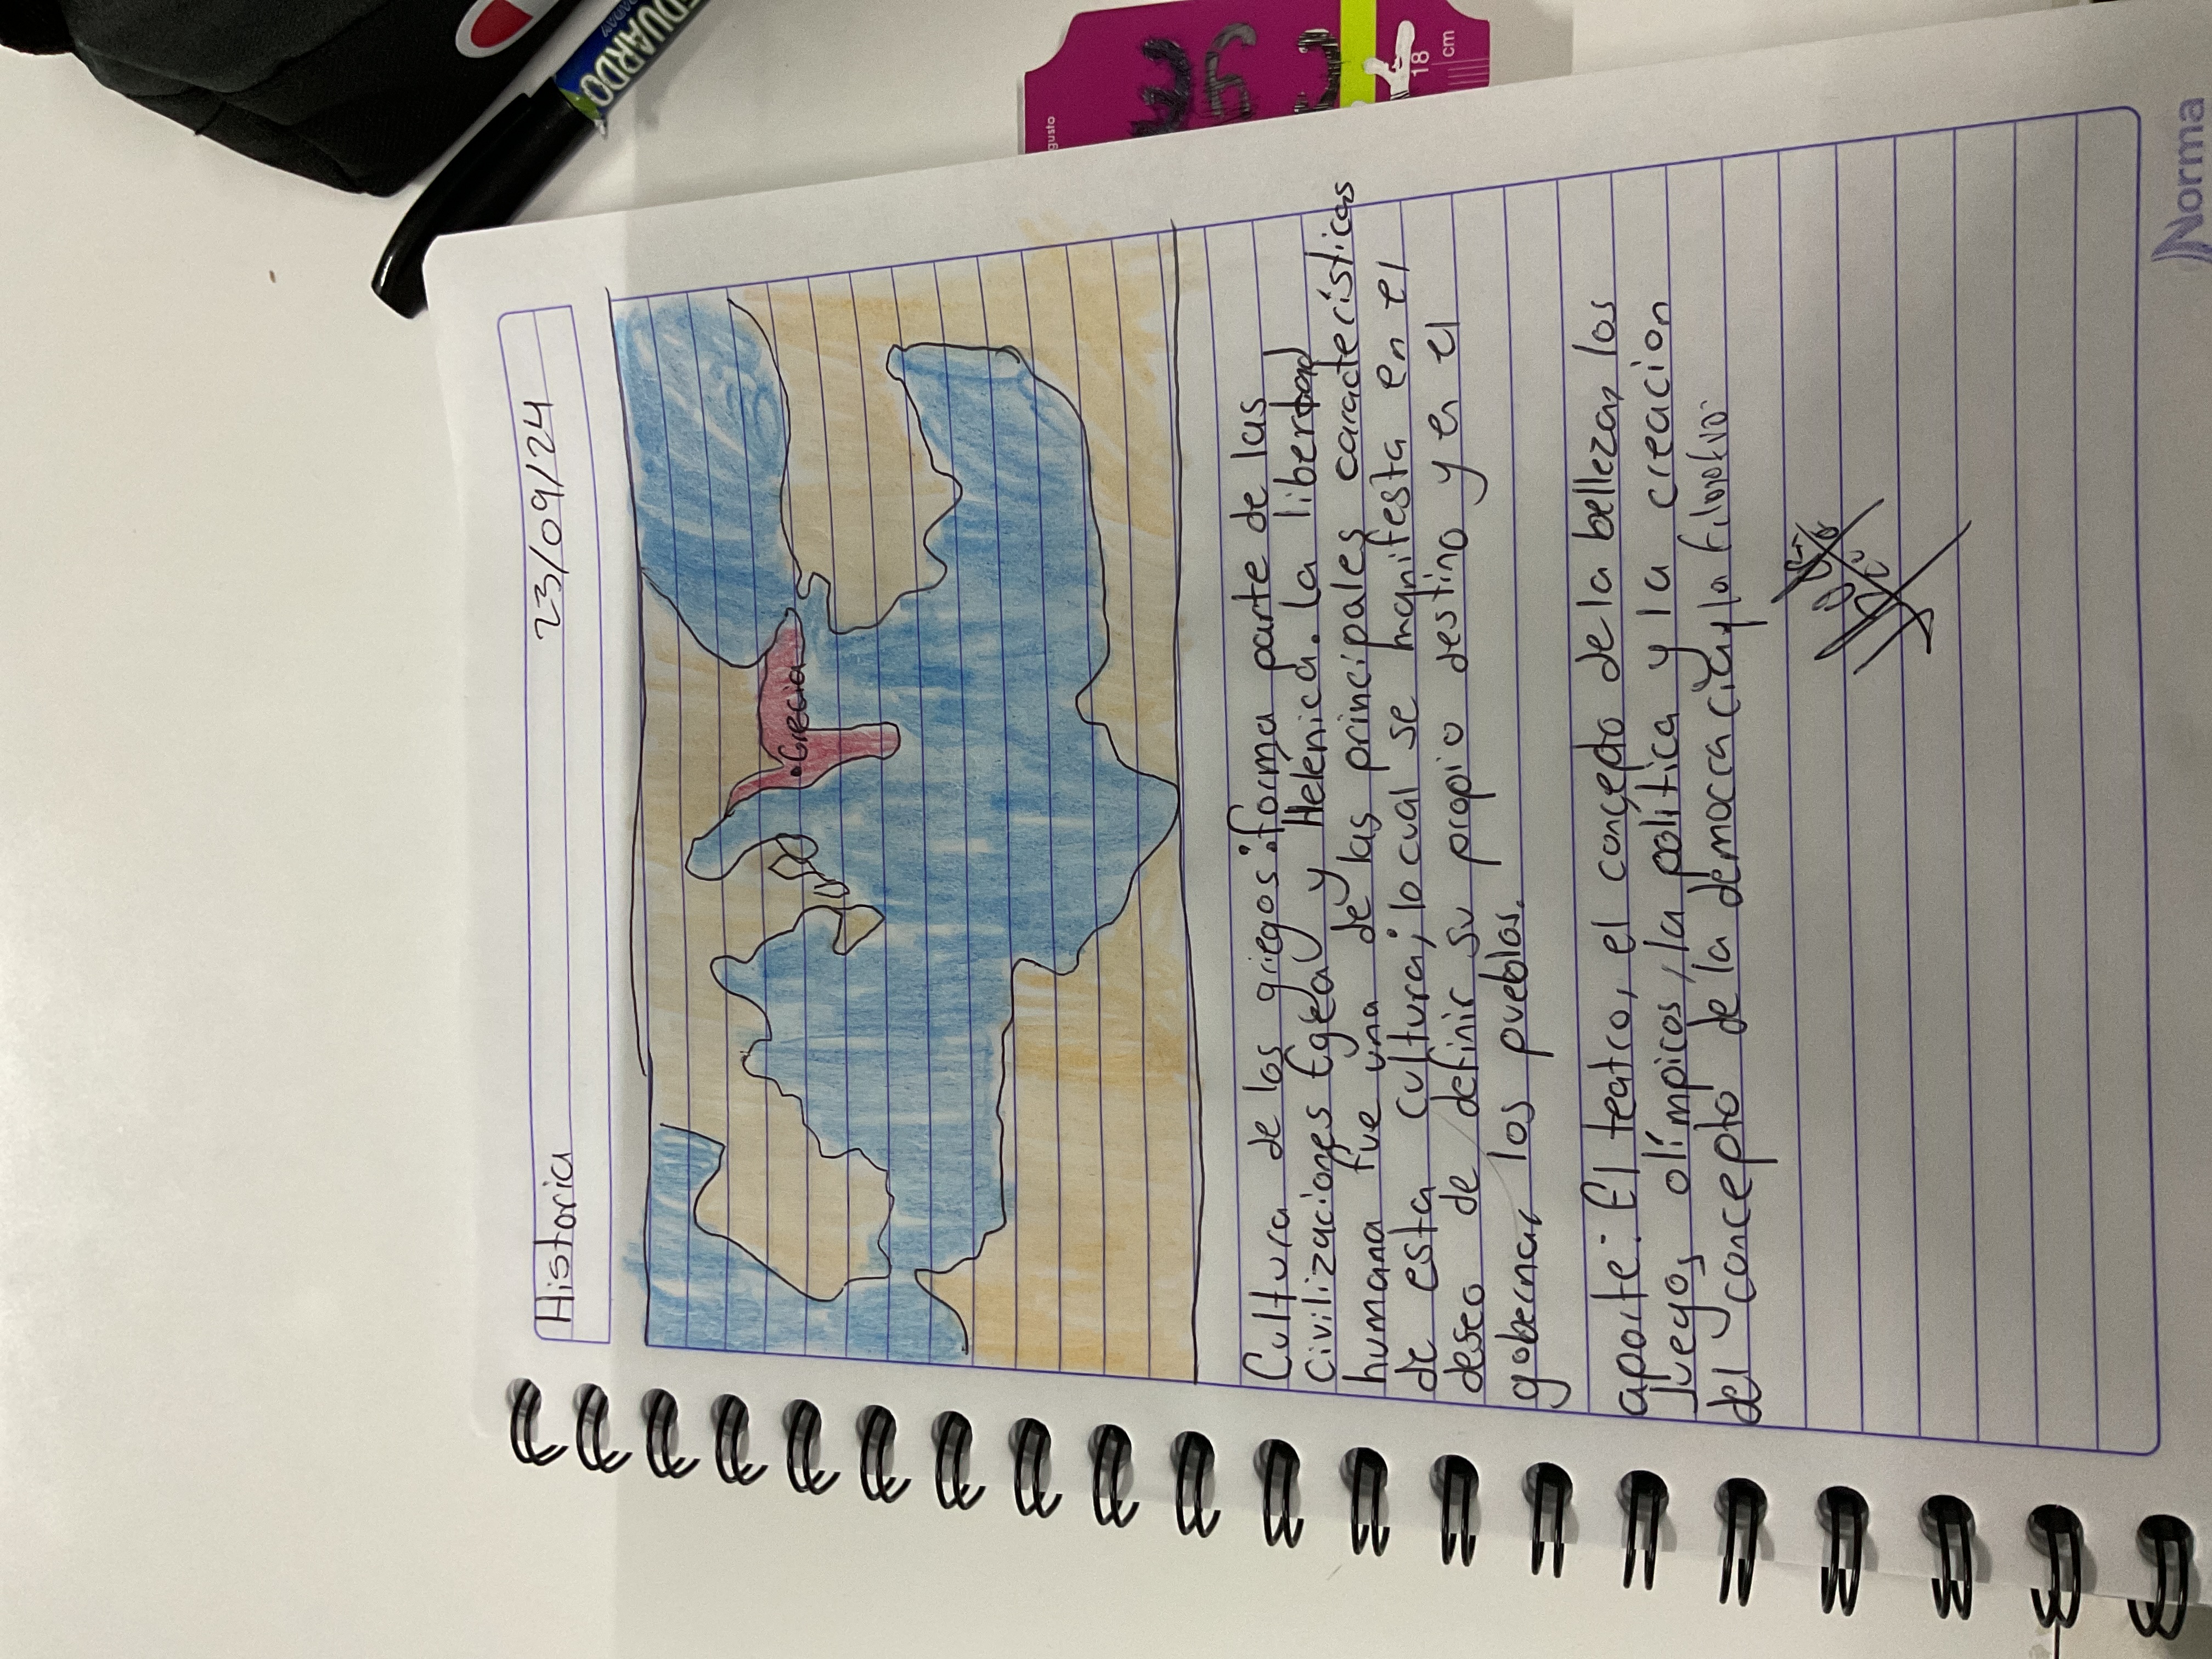 Historia
23/09/24
Grecia
Cultura de los griegos: forma parte de las
Civilizaciones Egea y Helénica. la libertad
humana fue una de las principales características
de esta cultura; lo cual se manifesta en el
deseo de definir su propio destino y en el
gobernar los pueblos.
aporte: El teatro, el concepto de la belleza, los
Juegos olímpicos, la política y la creacion
del concepto de la democracia, y la filosofia.
Norma
EDUARDO
18
cm
gusto